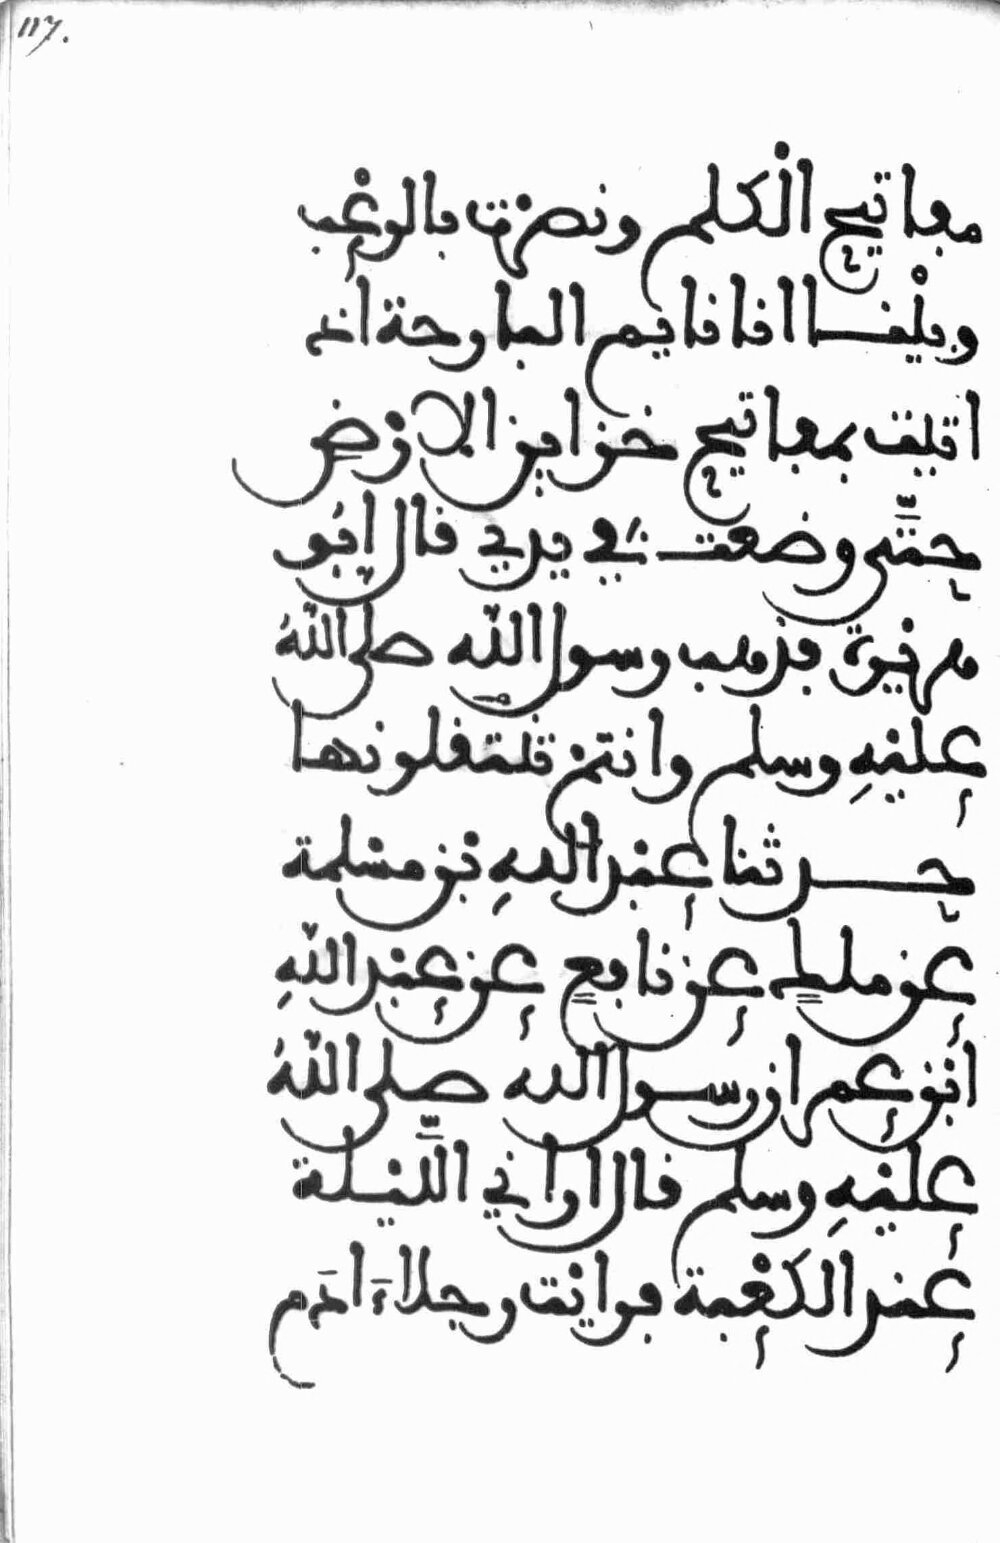 117.
مفاتيح الكلم ونصرت بالرعب
وبينا انا نايم البارحة اذ
اتيت بمفاتيح خزاين الارض
حتى وضعت في يدي قال ابو
هريرة فذهب رسول الله صلى الله
عليه وسلم وانتم تنتقلونها
حدثنا عبد الله بن مسلمة
عن ملك عن نافع عن عبد الله
ابن عمر ان رسول الله صلى الله
عليه وسلم قال اراني الليلة
عند الكعبة فرايت رجلا ءادم